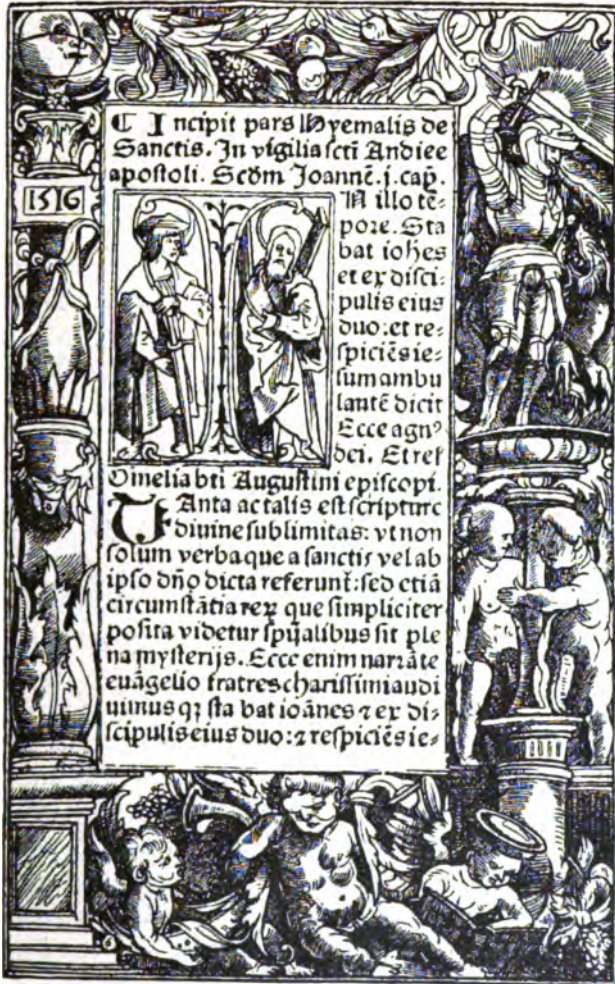 1516
☾ Incipit pars Hyemalis de
Sanctis. In vigilia scti Andree
apostoli. Scdm Joannē. j. cap.
N illo tē⸗
pore. Sta
bat iohes
et ex disci⸗
pulis eius
duo: et re⸗
spiciēs ie⸗
sum ambu
lantē dicit
Ecce agnꝰ
dei. Et rel̕
Omelia bti Augustini episcopi.
TAnta ac talis est scripture
diuine sublimitas: vt non
solum verba que a sanctis vel ab
ipso dño dicta referunt̄: sed etiā
circumstātia reꝝ que simpliciter
posita videtur spūalibus sit ple
na mysterijs. Ecce enim narrāte
euāgelio fratres charissimi audi
uimus qꝫ sta bat ioānes ⁊ ex di⸗
scipulis eius duo: ⁊ respiciēs ie⸗